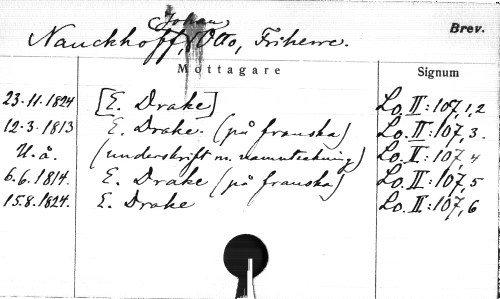 Johan
Nauckhoff, Otto, Friherre.
Brev.
Mottagare
Signum
23.11.1824 [E. Drake] Lo. II:107,1,2
12.3.1813 E. Drake. (på franska) Lo. II:107,3.
U.å. (underskrift m. namnteckning) Lo. II:107,4
6.6.1814. E. Drake (på franska) Lo. II:107,5
15.8.1824. E. Drake Lo. II:107,6